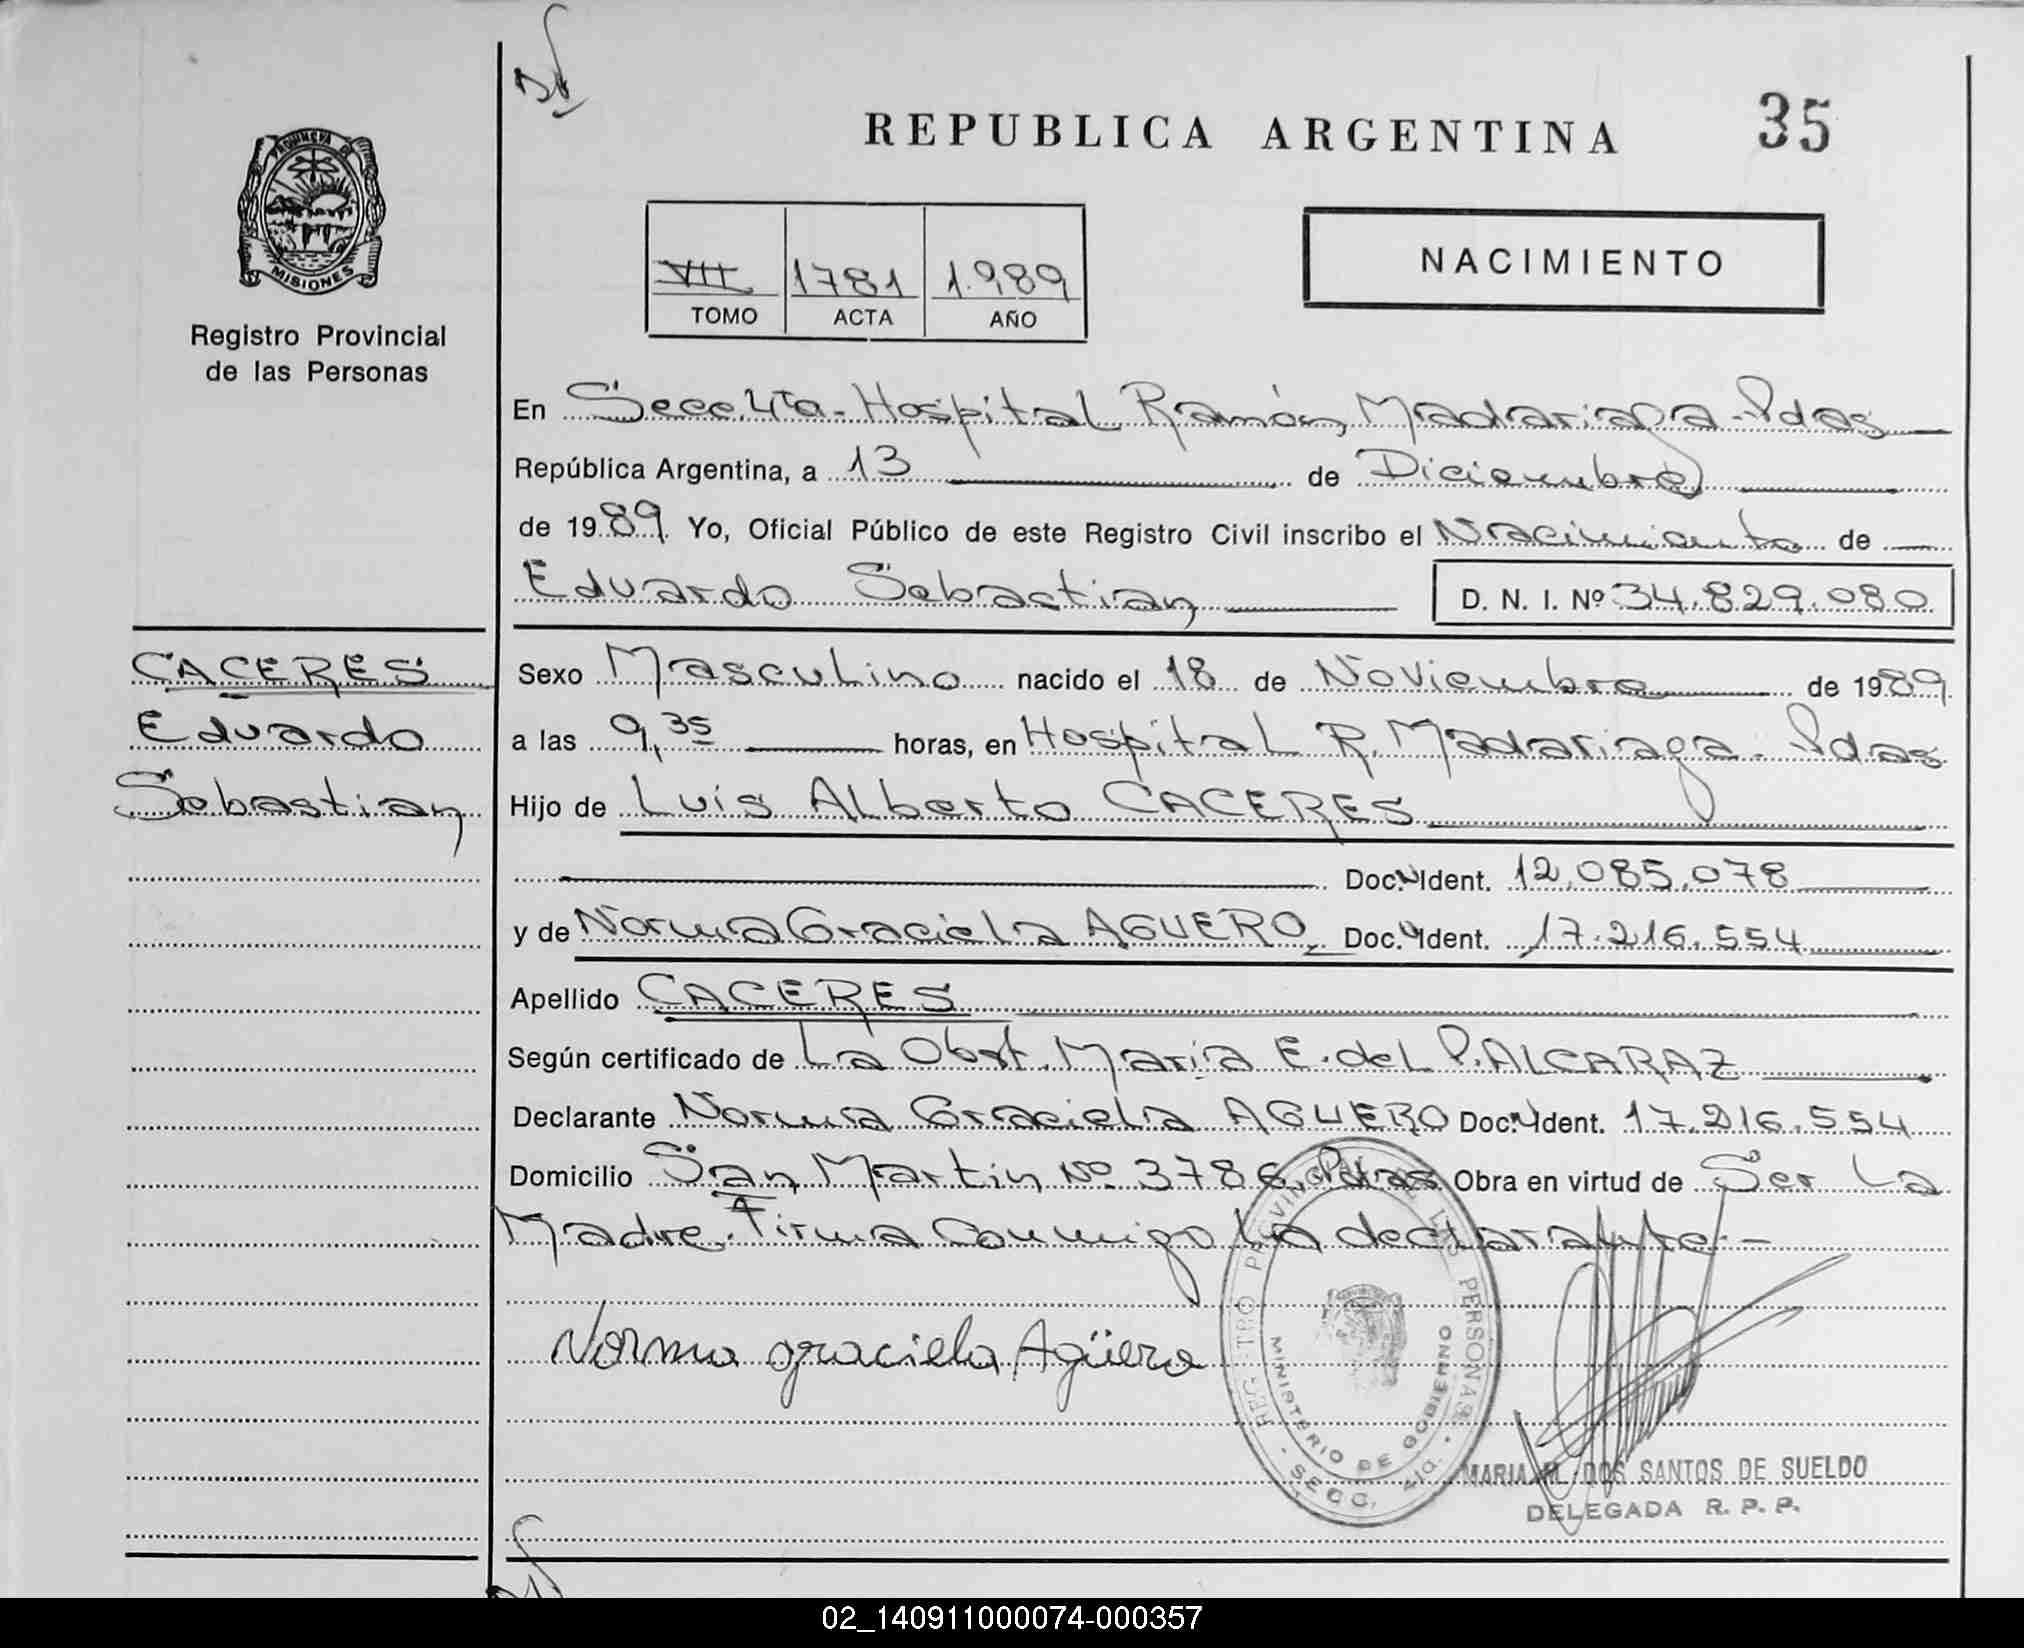 REPUBLICA ARGENTINA
35
PROVINCIA DE
MISIONES
Registro Provincial
de las Personas
VII 1781 1.989
TOMO ACTA AÑO
NACIMIENTO
En Secc. 4ta - Hospital Ramón Madariaga - Pdas
República Argentina, a 13 de Diciembre
de 1989. Yo, Oficial Público de este Registro Civil inscribo el Nacimiento de
Eduardo Sebastian D. N. I. Nº 34.829.080
CACERES
Eduardo
Sebastian
Sexo Masculino nacido el 18 de Noviembre de 1989
a las 9,35 horas, en Hospital R. Madariaga - Pdas
Hijo de Luis Alberto CACERES
Doc. N Ident. 12.085.078
y de Norma Graciela AGUERO Doc. N Ident. 17.216.554
Apellido CACERES
Según certificado de La Obst. Maria E. del P. ALCARAZ
Declarante Norma Graciela AGUERO Doc. N Ident. 17.216.554
Domicilio San Martin Nº 3786, Pdas Obra en virtud de Ser La
Madre. Firma Conmigo La declarante.-
Norma graciela Agüero
REGISTRO PROVINCIAL DE LAS PERSONAS
MINISTERIO DE GOBIERNO
SECC. 4ta.
MARIA M. DOS SANTOS DE SUELDO
DELEGADA R. P. P.
02_140911000074-000357